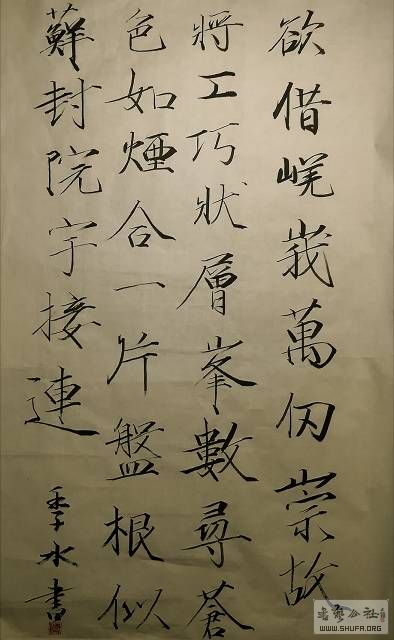 欲借嶢峩萬仞崇故
將工巧狀層峯數尋蒼
色如煙合一片盤根似
蘚封院宇接連
季水書
WWW.SHUFA.ORG